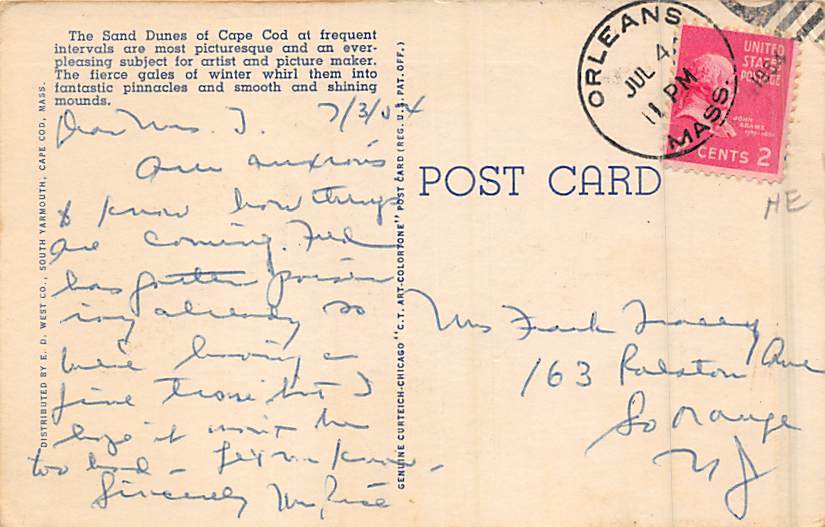 The Sand Dunes of Cape Cod at frequent
intervals are most picturesque and an ever-
pleasing subject for artist and picture maker.
The fierce gales of winter whirl them into
fantastic pinnacles and smooth and shining
mounds.
Dear Mrs. T. 7/3/54
Am anxious
to know how things
are coming. Fred
has gotten poison
ivy already so
we're having a
fine time but I
hope it won't be
too bad - Let me know -
Sincerely Mrs
DISTRIBUTED BY E. D. WEST CO., SOUTH YARMOUTH, CAPE COD, MASS.
GENUINE CURTEICH-CHICAGO "C.T. ART-COLORTONE" POST CARD (REG. U.S. PAT. OFF.)
POST CARD
ORLEANS
JUL 4
11 PM
MASS.
1954
UNITED
STATES
POSTAGE
JOHN
ADAMS
CENTS 2
HE
Mrs Frank
163 Ralston Ave
So Orange
N J